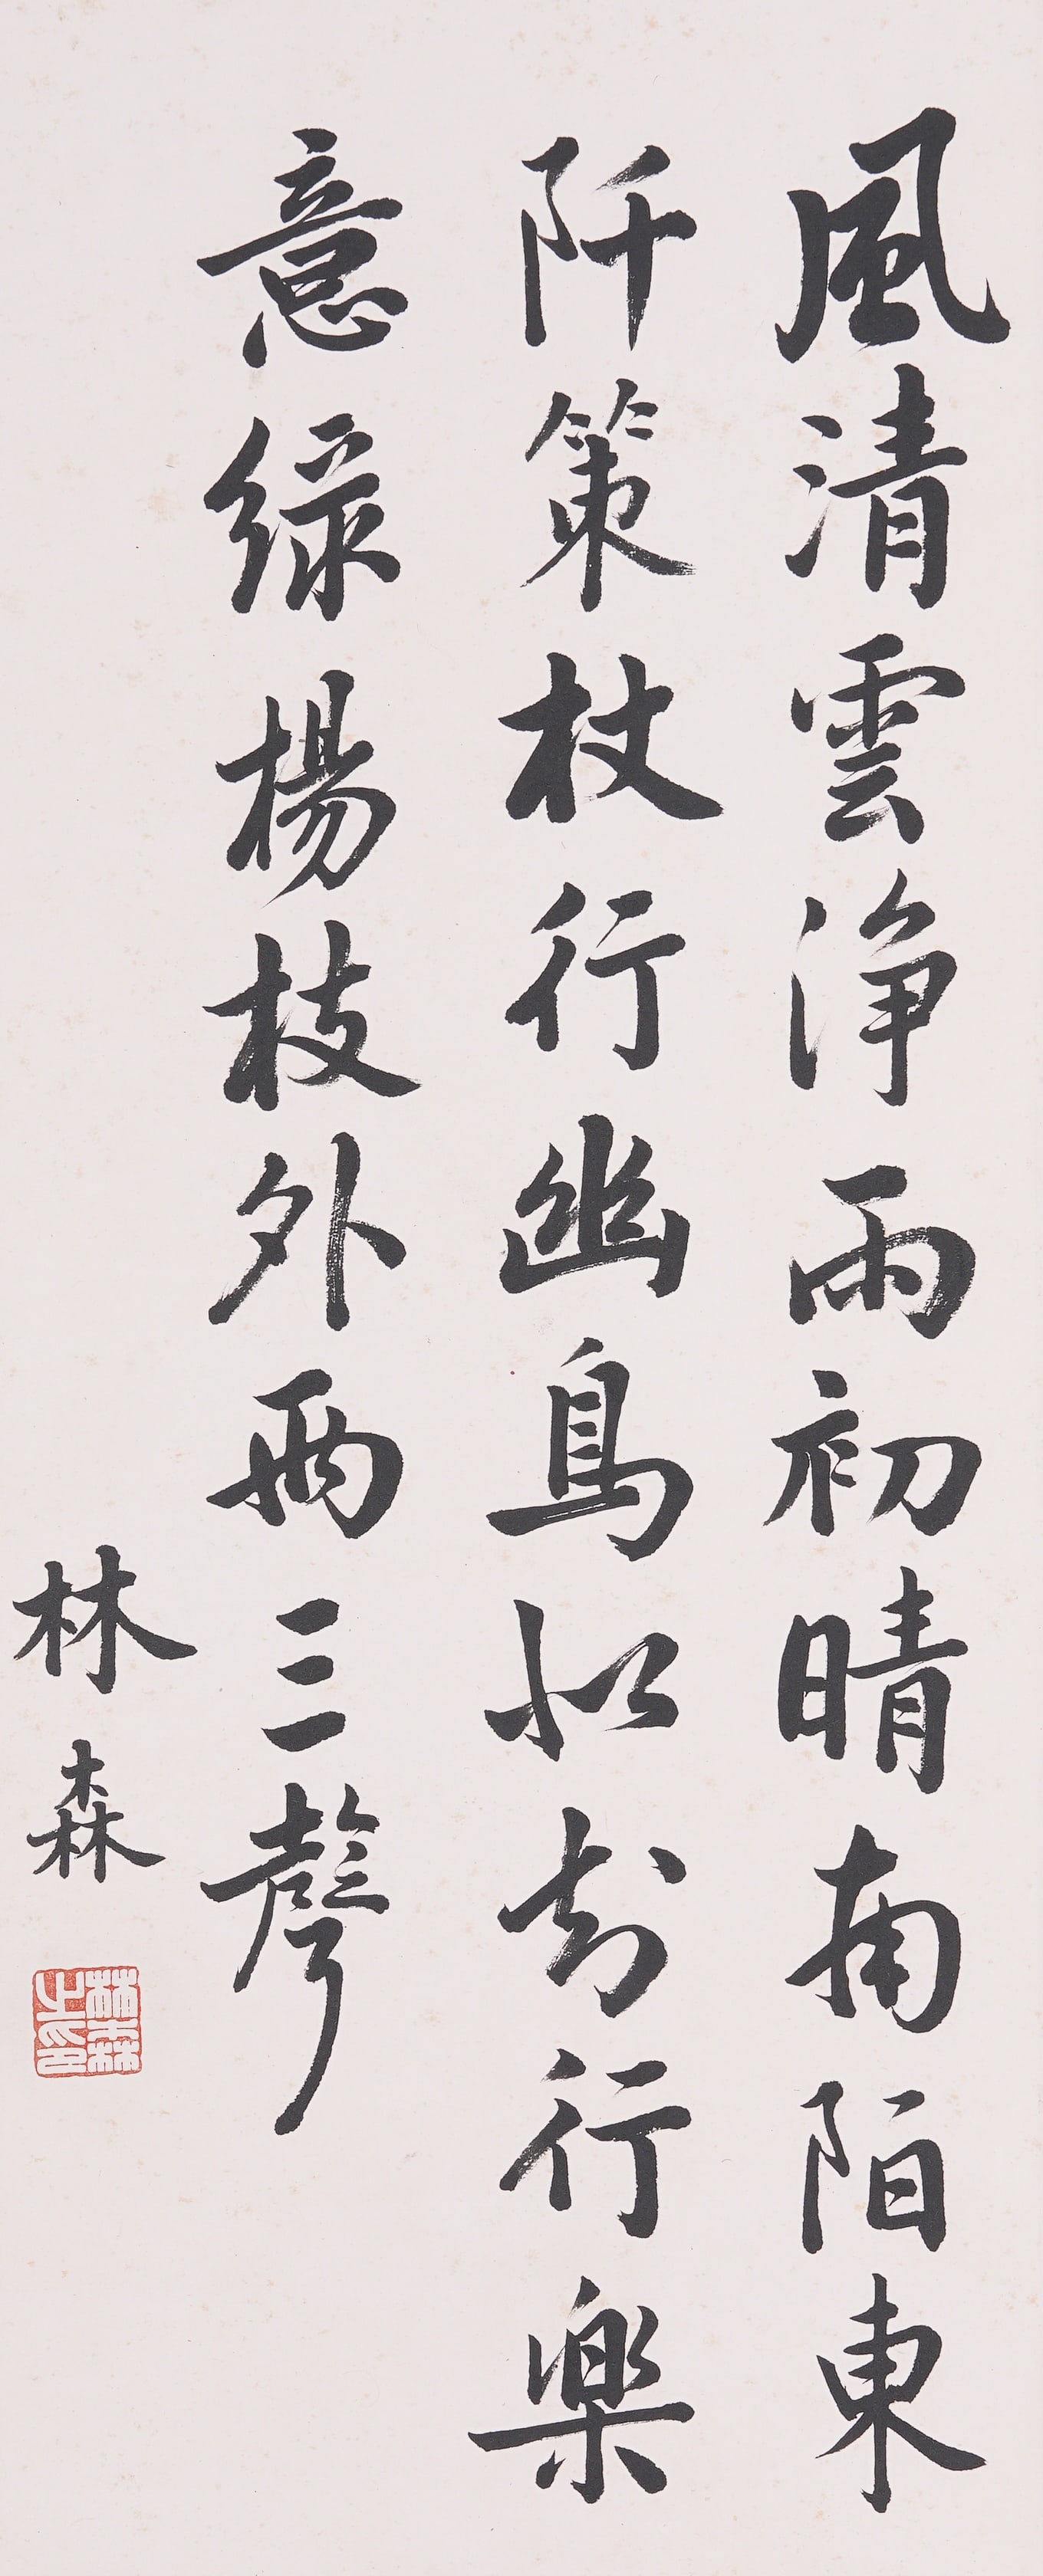 風清雲淨雨初晴南陌東
阡策杖行幽鳥似知行樂
意綠楊枝外兩三聲
林森
林森之印